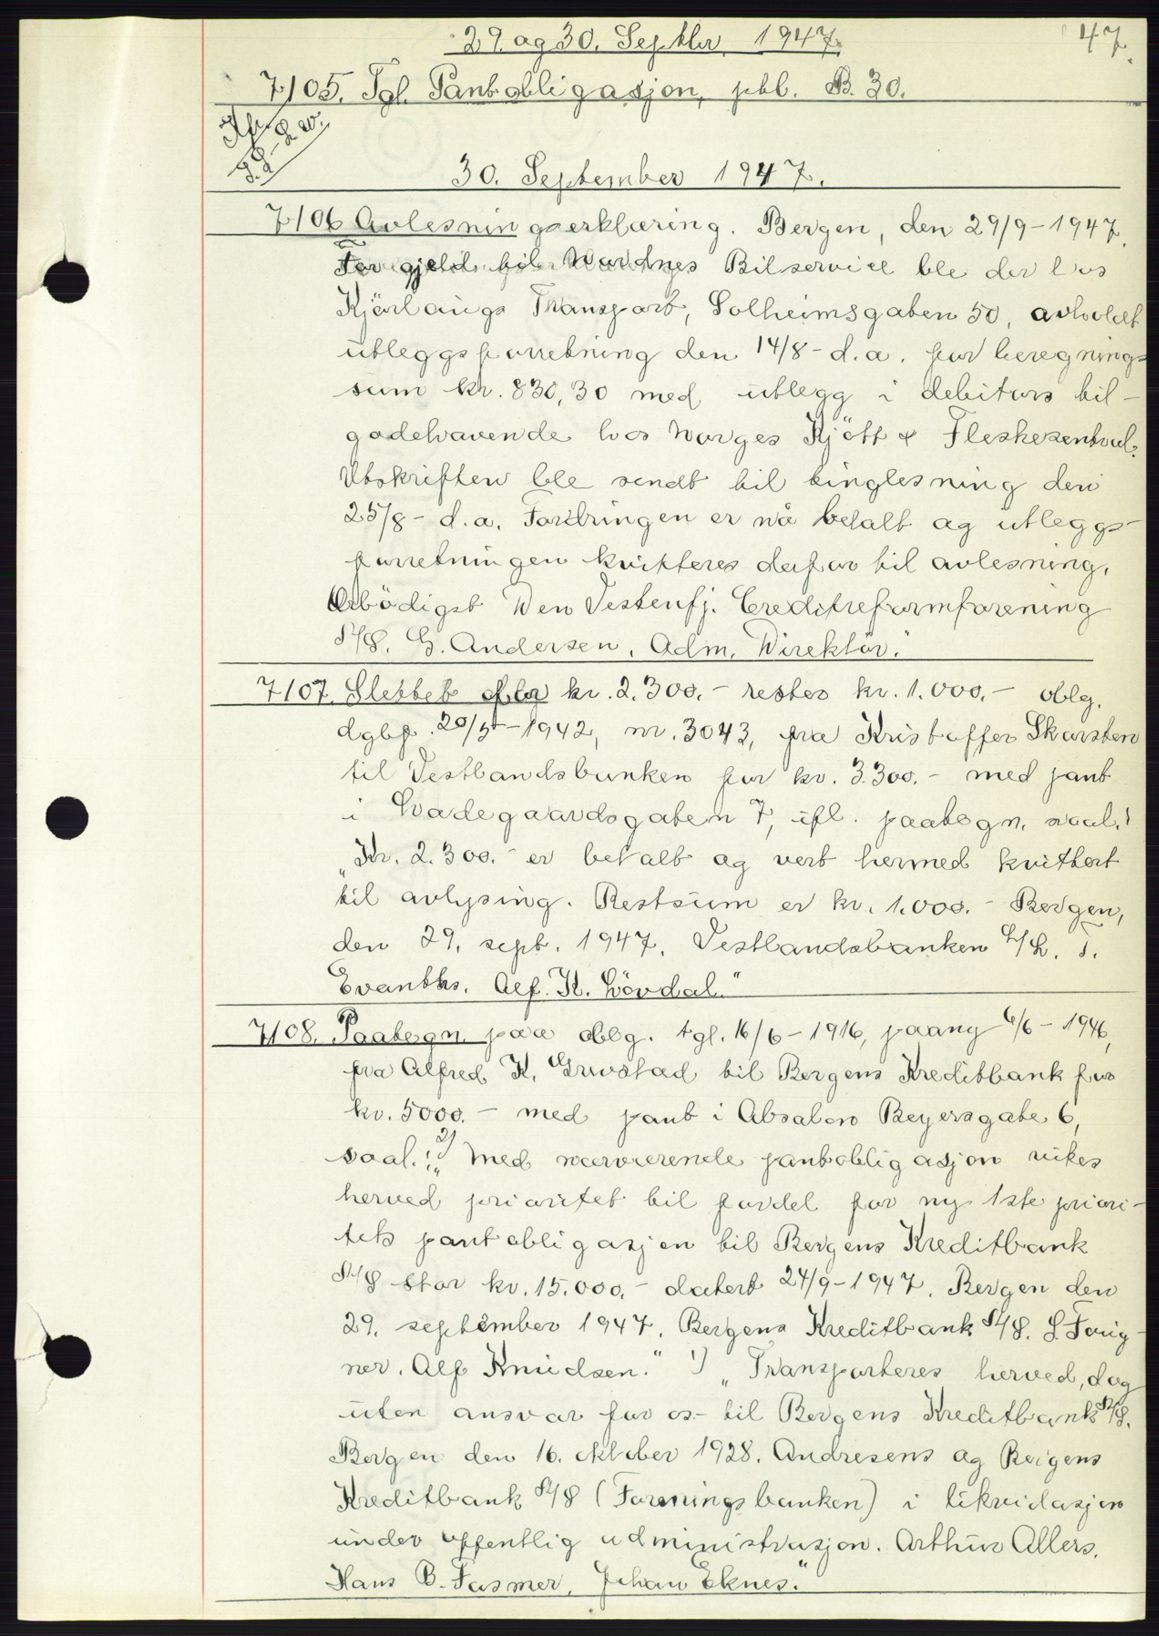 29 og 30. Septbr. 1947.
47.
7105. Tgl. Pantobligasjon, pkl. B. 30.
30. September 1947.
7106 Avlesningserklæring. Bergen, den 29/9-1947.
For gjeld til Wardnes Bilservice ble der hos
Kjärlaugs Transport, Solheimsgaten 50, avholdt
utleggsforretning den 14/8- d.a. for beregnings-
sum kr. 830,30 med utlegg i debitors til-
godehavende hos Norges Kjött & Fleskesentral.
Utskriften ble sendt til tinglesning den
25/8- d.a. Fordringen er nå betalt og utleggs-
forretningen kvitteres derfor til avlesning.
Ærbödigst Den Vestenfj. Creditreformforening
A/S. G. Andersen, Adm. Direktör."
7107. Slettet efter kr. 2.300.- rester kr. 1.000.- oblg.
dgbf. 20/5-1942, nr. 3043, fra Kristoffer Skarsten
til Vestlandsbanken for kr. 3.300.- med pant
i Ladegaardsgaten 7, ifl. paategn. saal.:
"Kr. 2.300.- er betalt og vert hermed kvittert
til avlysing. Restsum er kr. 1.000.- Bergen,
den 29. sept. 1947. Vestlandsbanken L/L. T.
Evanths. Alf. K. Lövdal."
7108. Paategn. paa oblg. tgl. 16/6-1916, paany 6/6-1946,
fra Alfred K. Grostad til Bergens Kreditbank for
kr. 5000.- med pant i Absalon Beyersgate 6,
saal.: 2) "Med nærværende pantobligasjon vikes
herved prioritet til fordel for ny 1ste priori-
tets pantobligasjon til Bergens Kreditbank
A/S stor kr. 15.000.- datert 24/9-1947. Bergen den
29. september 1947. Bergens Kreditbank A/S. S. Foug-
ner. Alf Knudsen." 1) "Transporteres herved, dog
uten ansvar for os- til Bergens Kreditbank A/S.
Bergen den 16. oktober 1928. Andresens og Bergens
Kreditbank A/S (Foreningsbanken) i likvidasjon
under offentlig administrasjon. Arthur Allers.
Hans B. Fasmer. Johan Eknes."